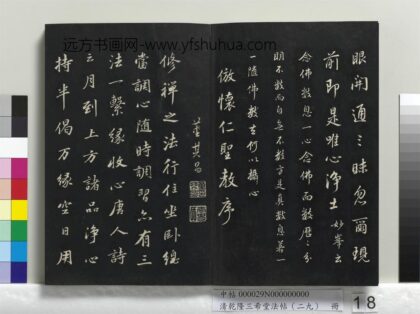 远方书画网-www.yfshuhua.com
眼開通三昧忽爾現
前即是唯心淨土 妙峯云
念佛數息一心念佛而數歷〻分
明不數而自
一隨佛數去何以攝心
倣懷仁聖教序
董其昌
修禪之法行住坐卧總
當調心隨時調習亦有三
法一繫緣收心唐人詩
云月到上方諸品淨心
持半偈万緣空日用
中帖 000029N000000000
清乾隆三希堂法帖(二九) 冊
18